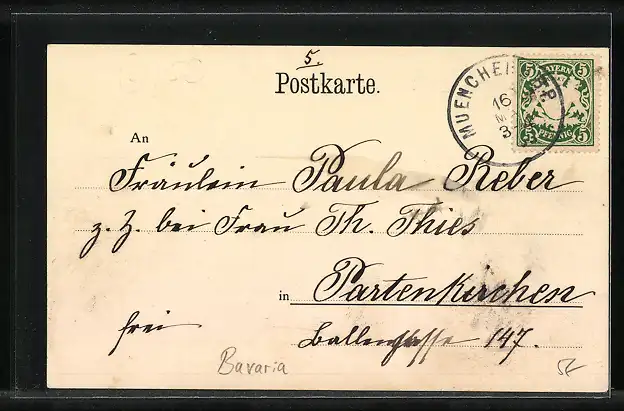 5.
Postkarte.
MUENCHEN
16
3
5 BAYERN 5
5 PFENNIG 5
An
Fräulein Paula Reber
z. Z. bei Frau Th. Thies
in Partenkirchen
frei
147.
Bavaria